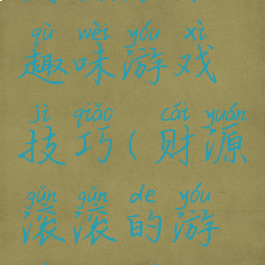 qù wèi yóu xì
趣味游戏
jì qiǎo cái yuán
技巧(财源
gǔn gǔn de yóu
滚滚的游